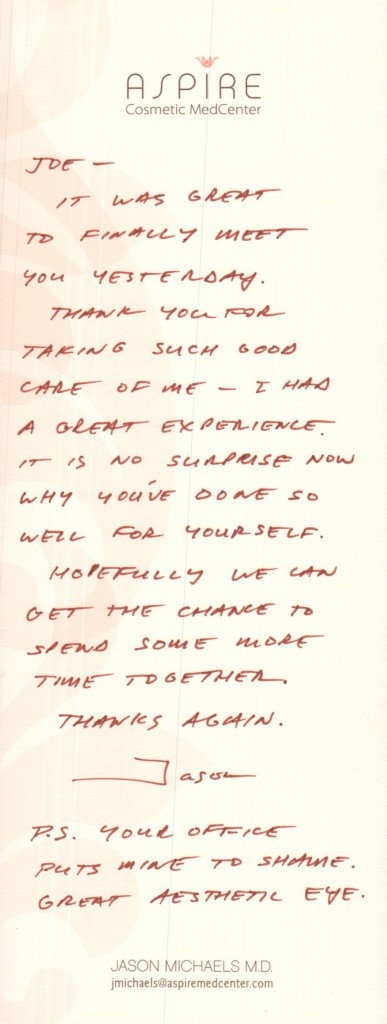 ASPIRE
Cosmetic MedCenter
JOE —
IT WAS GREAT
TO FINALLY MEET
YOU YESTERDAY.
THANK YOU FOR
TAKING SUCH GOOD
CARE OF ME — I HAD
A GREAT EXPERIENCE.
IT IS NO SURPRISE NOW
WHY YOU'VE DONE SO
WELL FOR YOURSELF.
HOPEFULLY WE CAN
GET THE CHANCE TO
SPEND SOME MORE
TIME TOGETHER.
THANKS AGAIN.
Jason
P.S. YOUR OFFICE
PUTS MINE TO SHAME.
GREAT AESTHETIC EYE.
JASON MICHAELS M.D.
jmichaels@aspiremedcenter.com